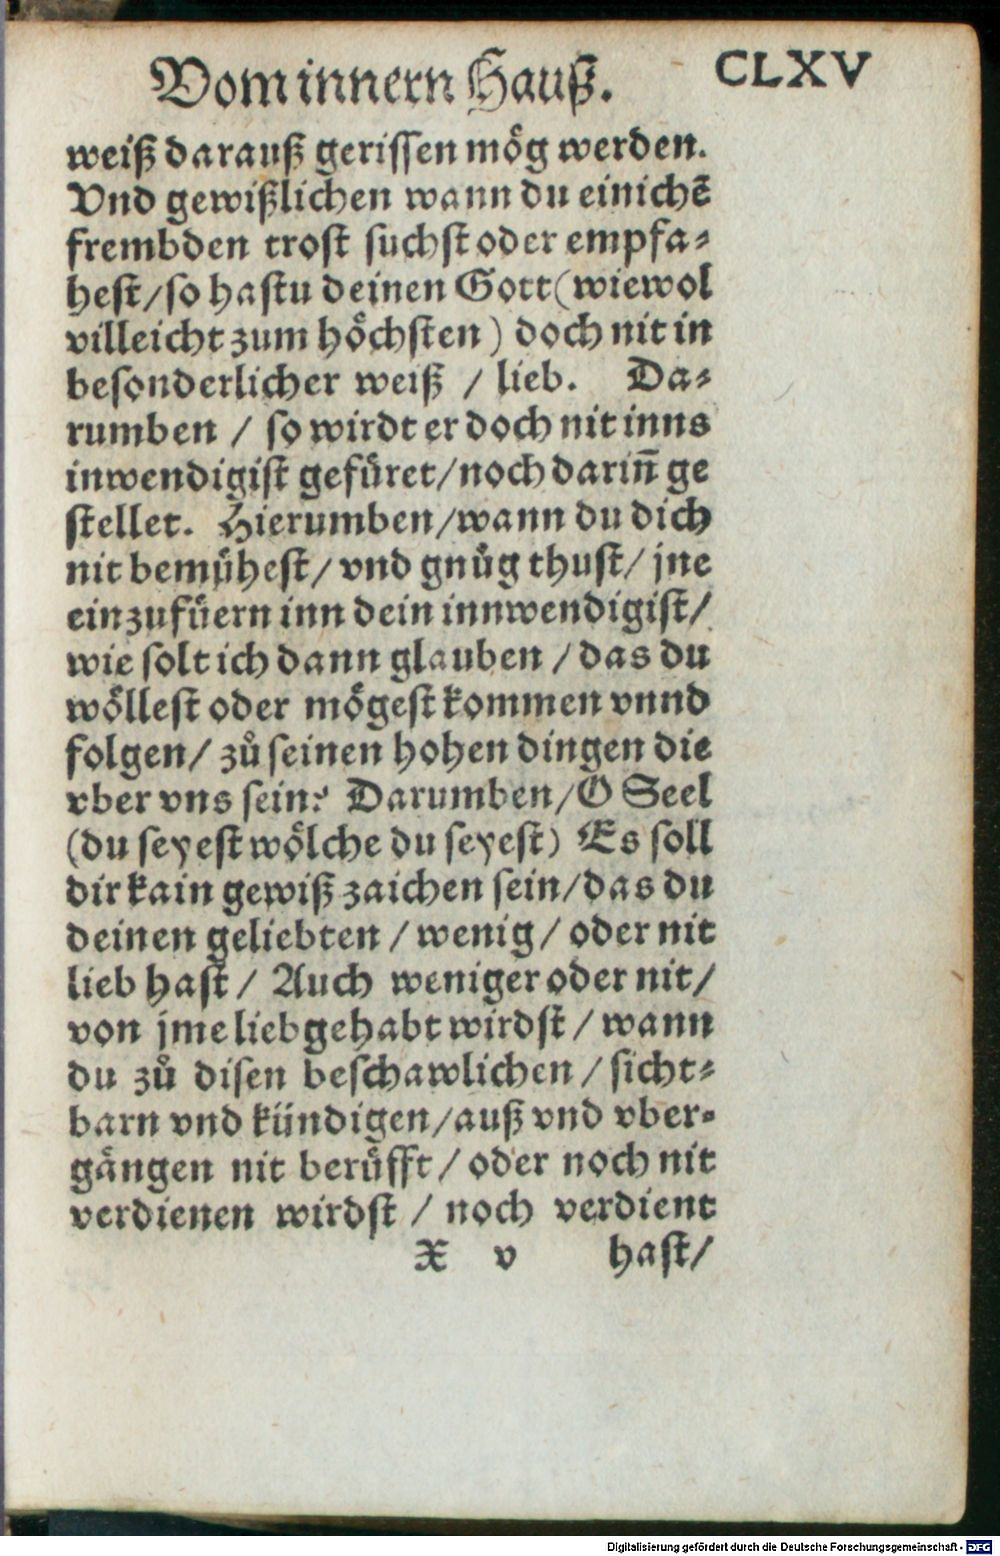 Vom innern Hauß. CLXV
weiß darauß gerissen mög werden.
Vnd gewißlichen wann du einichē
frembden trost suchst oder empfa⸗
hest/so hastu deinen Gott(wiewol
villeicht zum höchsten) doch nit in
besonderlicher weiß / lieb. Da⸗
rumben / so wirdt er doch nit inns
inwendigist gefüret/noch darin̄ ge
stellet. Hierumben/wann du dich
nit bemühest/ vnd gnůg thust/ jne
einzufüern inn dein innwendigist/
wie solt ich dann glauben /das du
wöllest oder mögest kommen vnnd
folgen/ zů seinen hohen dingen die
vber vns sein? Darumben/O Seel
(du seyest wölche du seyest) Es soll
dir kain gewiß zaichen sein/das du
deinen geliebten /wenig/ oder nit
lieb hast / Auch weniger oder nit/
von jme lieb gehabt wirdst /wann
du zů disen beschawlichen /sicht⸗
barn vnd kündigen/auß vnd vber⸗
gängen nit berüfft / oder noch nit
verdienen wirdst / noch verdient
X v hast/
Digitalisierung gefördert durch die Deutsche Forschungsgemeinschaft - DFG